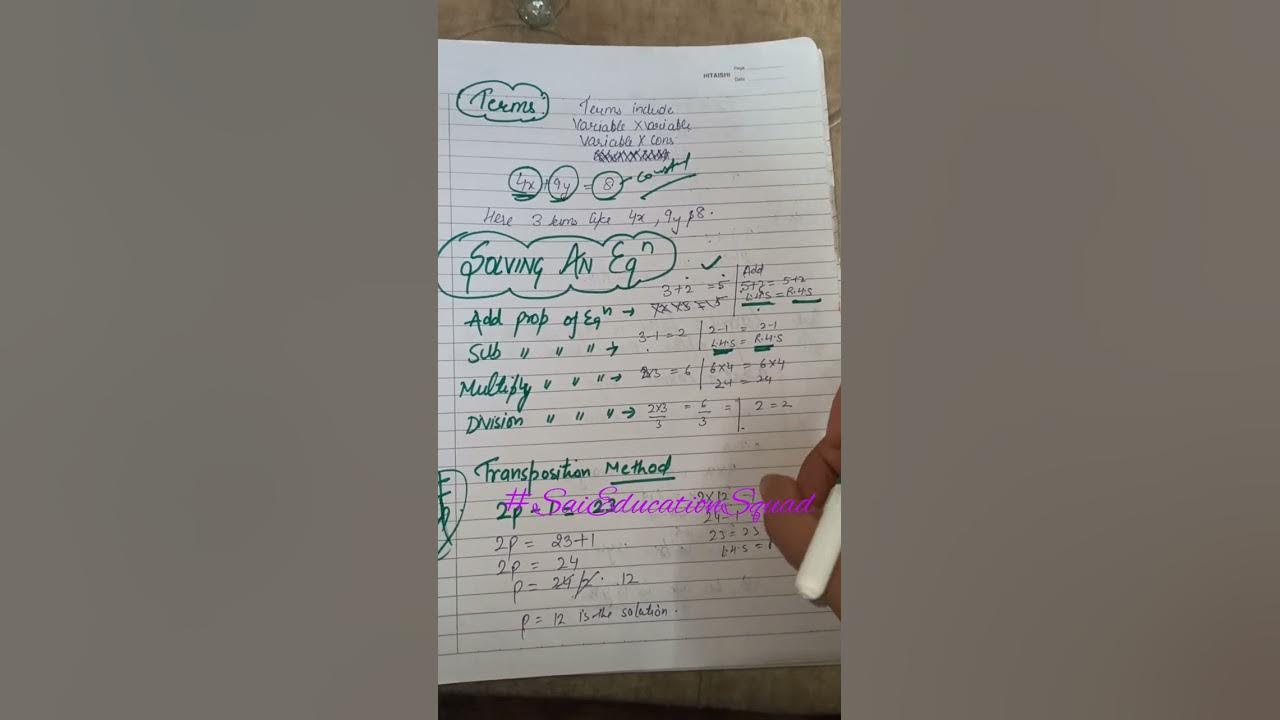 HITAISHI
Page
Date
Terms:
Terms include
Variable X variable
Variable X Cons
4x + 9y = 8 const
Here 3 terms like 4x, 9y & 8.
SOLVING AN Eqn
Add prop of Eqn → 3+2 = 5 | Add 5+2 = 5+2
L.H.S = R.H.S
Sub " " " → 3-1=2 | 2-1 = 2-1
L.H.S = R.H.S
Multiply " " " → 2x3 = 6 | 6x4 = 6x4
24 = 24
Division " " " → 2x3/3 = 6/3 = | 2 = 2
Transposition Method
#SaiEducationSquad
2p - 1 = 23
2p = 23+1
2p = 24
p = 24/2 . 12
p = 12 is the solution.
2x12
24-1
23 = 23
L.H.S =